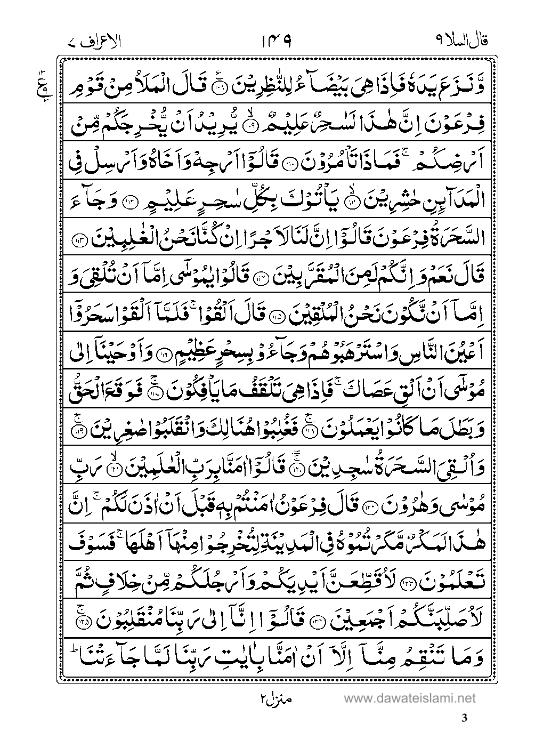 قال الملا ٩
١٤٩
الاعراف ٧
وَّنَزَعَ يَدَهٗ فَاِذَا هِىَ بَيۡضَآءُ لِلنّٰظِرِيۡنَ ﴿۱۰۸﴾ قَالَ الۡمَلَاُ مِنۡ قَوۡمِ
فِرۡعَوۡنَ اِنَّ هٰذَا لَسٰحِرٌ عَلِيۡمٌ ﴿۱۰۹﴾ يُّرِيۡدُ اَنۡ يُّخۡرِجَكُمۡ مِّنۡ
اَرۡضِكُمۡ‌ ۚ فَمَاذَا تَاۡمُرُوۡنَ ﴿۱۱۰﴾ قَالُوۡۤا اَرۡجِهۡ وَاَخَاهُ وَاَرۡسِلۡ فِى
الۡمَدَآٮِٕنِ حٰشِرِيۡنَ ﴿۱۱۱﴾ يَاۡتُوۡكَ بِكُلِّ سٰحِرٍ عَلِيۡمٍ ﴿۱۱۲﴾ وَجَآءَ
السَّحَرَةُ فِرۡعَوۡنَ قَالُوۡۤا اِنَّ لَنَا لَاَجۡرًا اِنۡ كُنَّا نَحۡنُ الۡغٰلِبِيۡنَ ﴿۱۱۳﴾
قَالَ نَعَمۡ وَاِنَّكُمۡ لَمِنَ الۡمُقَرَّبِيۡنَ ﴿۱۱۴﴾ قَالُوۡا يٰمُوۡسٰٓى اِمَّاۤ اَنۡ تُلۡقِىَ وَ
اِمَّاۤ اَنۡ نَّكُوۡنَ نَحۡنُ الۡمُلۡقِيۡنَ ﴿۱۱۵﴾ قَالَ اَلۡقُوۡا‌ ۚ فَلَمَّاۤ اَلۡقَوۡا سَحَرُوۡۤا
اَعۡيُنَ النَّاسِ وَاسۡتَرۡهَبُوۡهُمۡ وَجَآءُوۡ بِسِحۡرٍ عَظِيۡمٍ ﴿۱۱۶﴾ وَاَوۡحَيۡنَاۤ اِلٰى
مُوۡسٰٓى اَنۡ اَلۡقِ عَصَاكَ‌ ۚ فَاِذَا هِىَ تَلۡقَفُ مَا يَاۡفِكُوۡنَ‌ ۚ ﴿۱۱۷﴾ فَوَقَعَ الۡحَقُّ
وَبَطَلَ مَا كَانُوۡا يَعۡمَلُوۡنَ‌ ۚ ﴿۱۱۸﴾ فَغُلِبُوۡا هُنَالِكَ وَانْقَلَبُوۡا صٰغِرِيۡنَ‌ ۚ ﴿۱۱۹﴾
وَاُلۡقِىَ السَّحَرَةُ سٰجِدِيۡنَ‌ ۚ ﴿۱۲۰﴾ قَالُوۡۤا اٰمَنَّا بِرَبِّ الۡعٰلَمِيۡنَ ۙ ﴿۱۲۱﴾ رَبِّ
مُوۡسٰى وَهٰرُوۡنَ ﴿۱۲۲﴾ قَالَ فِرۡعَوۡنُ اٰمَنۡتُمۡ بِهٖ قَبۡلَ اَنۡ اٰذَنَ لَكُمۡ‌ ۚ اِنَّ
هٰذَا لَمَكۡرٌ مَّكَرۡتُمُوۡهُ فِى الۡمَدِيۡنَةِ لِتُخۡرِجُوۡا مِنۡهَاۤ اَهۡلَهَا‌ ۚ فَسَوۡفَ
تَعۡلَمُوۡنَ ﴿۱۲۳﴾ لَاُقَطِّعَنَّ اَيۡدِيَكُمۡ وَاَرۡجُلَكُمۡ مِّنۡ خِلَافٍ ثُمَّ
لَاُصَلِّبَنَّكُمۡ اَجۡمَعِيۡنَ ﴿۱۲۴﴾ قَالُوۡۤا اِنَّاۤ اِلٰى رَبِّنَا مُنۡقَلِبُوۡنَ‌ ۚ ﴿۱۲۵﴾
وَمَا تَنۡقِمُ مِنَّاۤ اِلَّاۤ اَنۡ اٰمَنَّا بِاٰيٰتِ رَبِّنَا لَمَّا جَآءَتۡنَا‌ ؕ
منزل ٢
www.dawateislami.net
3